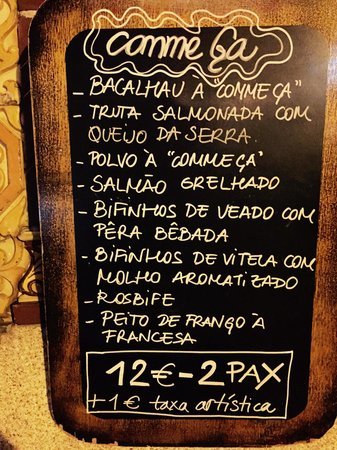 Comme Ça
- BACALHAU À "COMME ÇA"
- TRUTA SALMONADA COM
QUEIJO DA SERRA.
- POLVO À "COMME ÇA"
- SALMÃO GRELHADO
- BIFINHOS DE VEADO COM
PÊRA BÊBADA
- BIFINHOS DE VITELA COM
MOLHO AROMATIZADO
- ROSBIFE
- PEITO DE FRANGO À
FRANCESA
12€ - 2 PAX
+ 1€ taxa artística